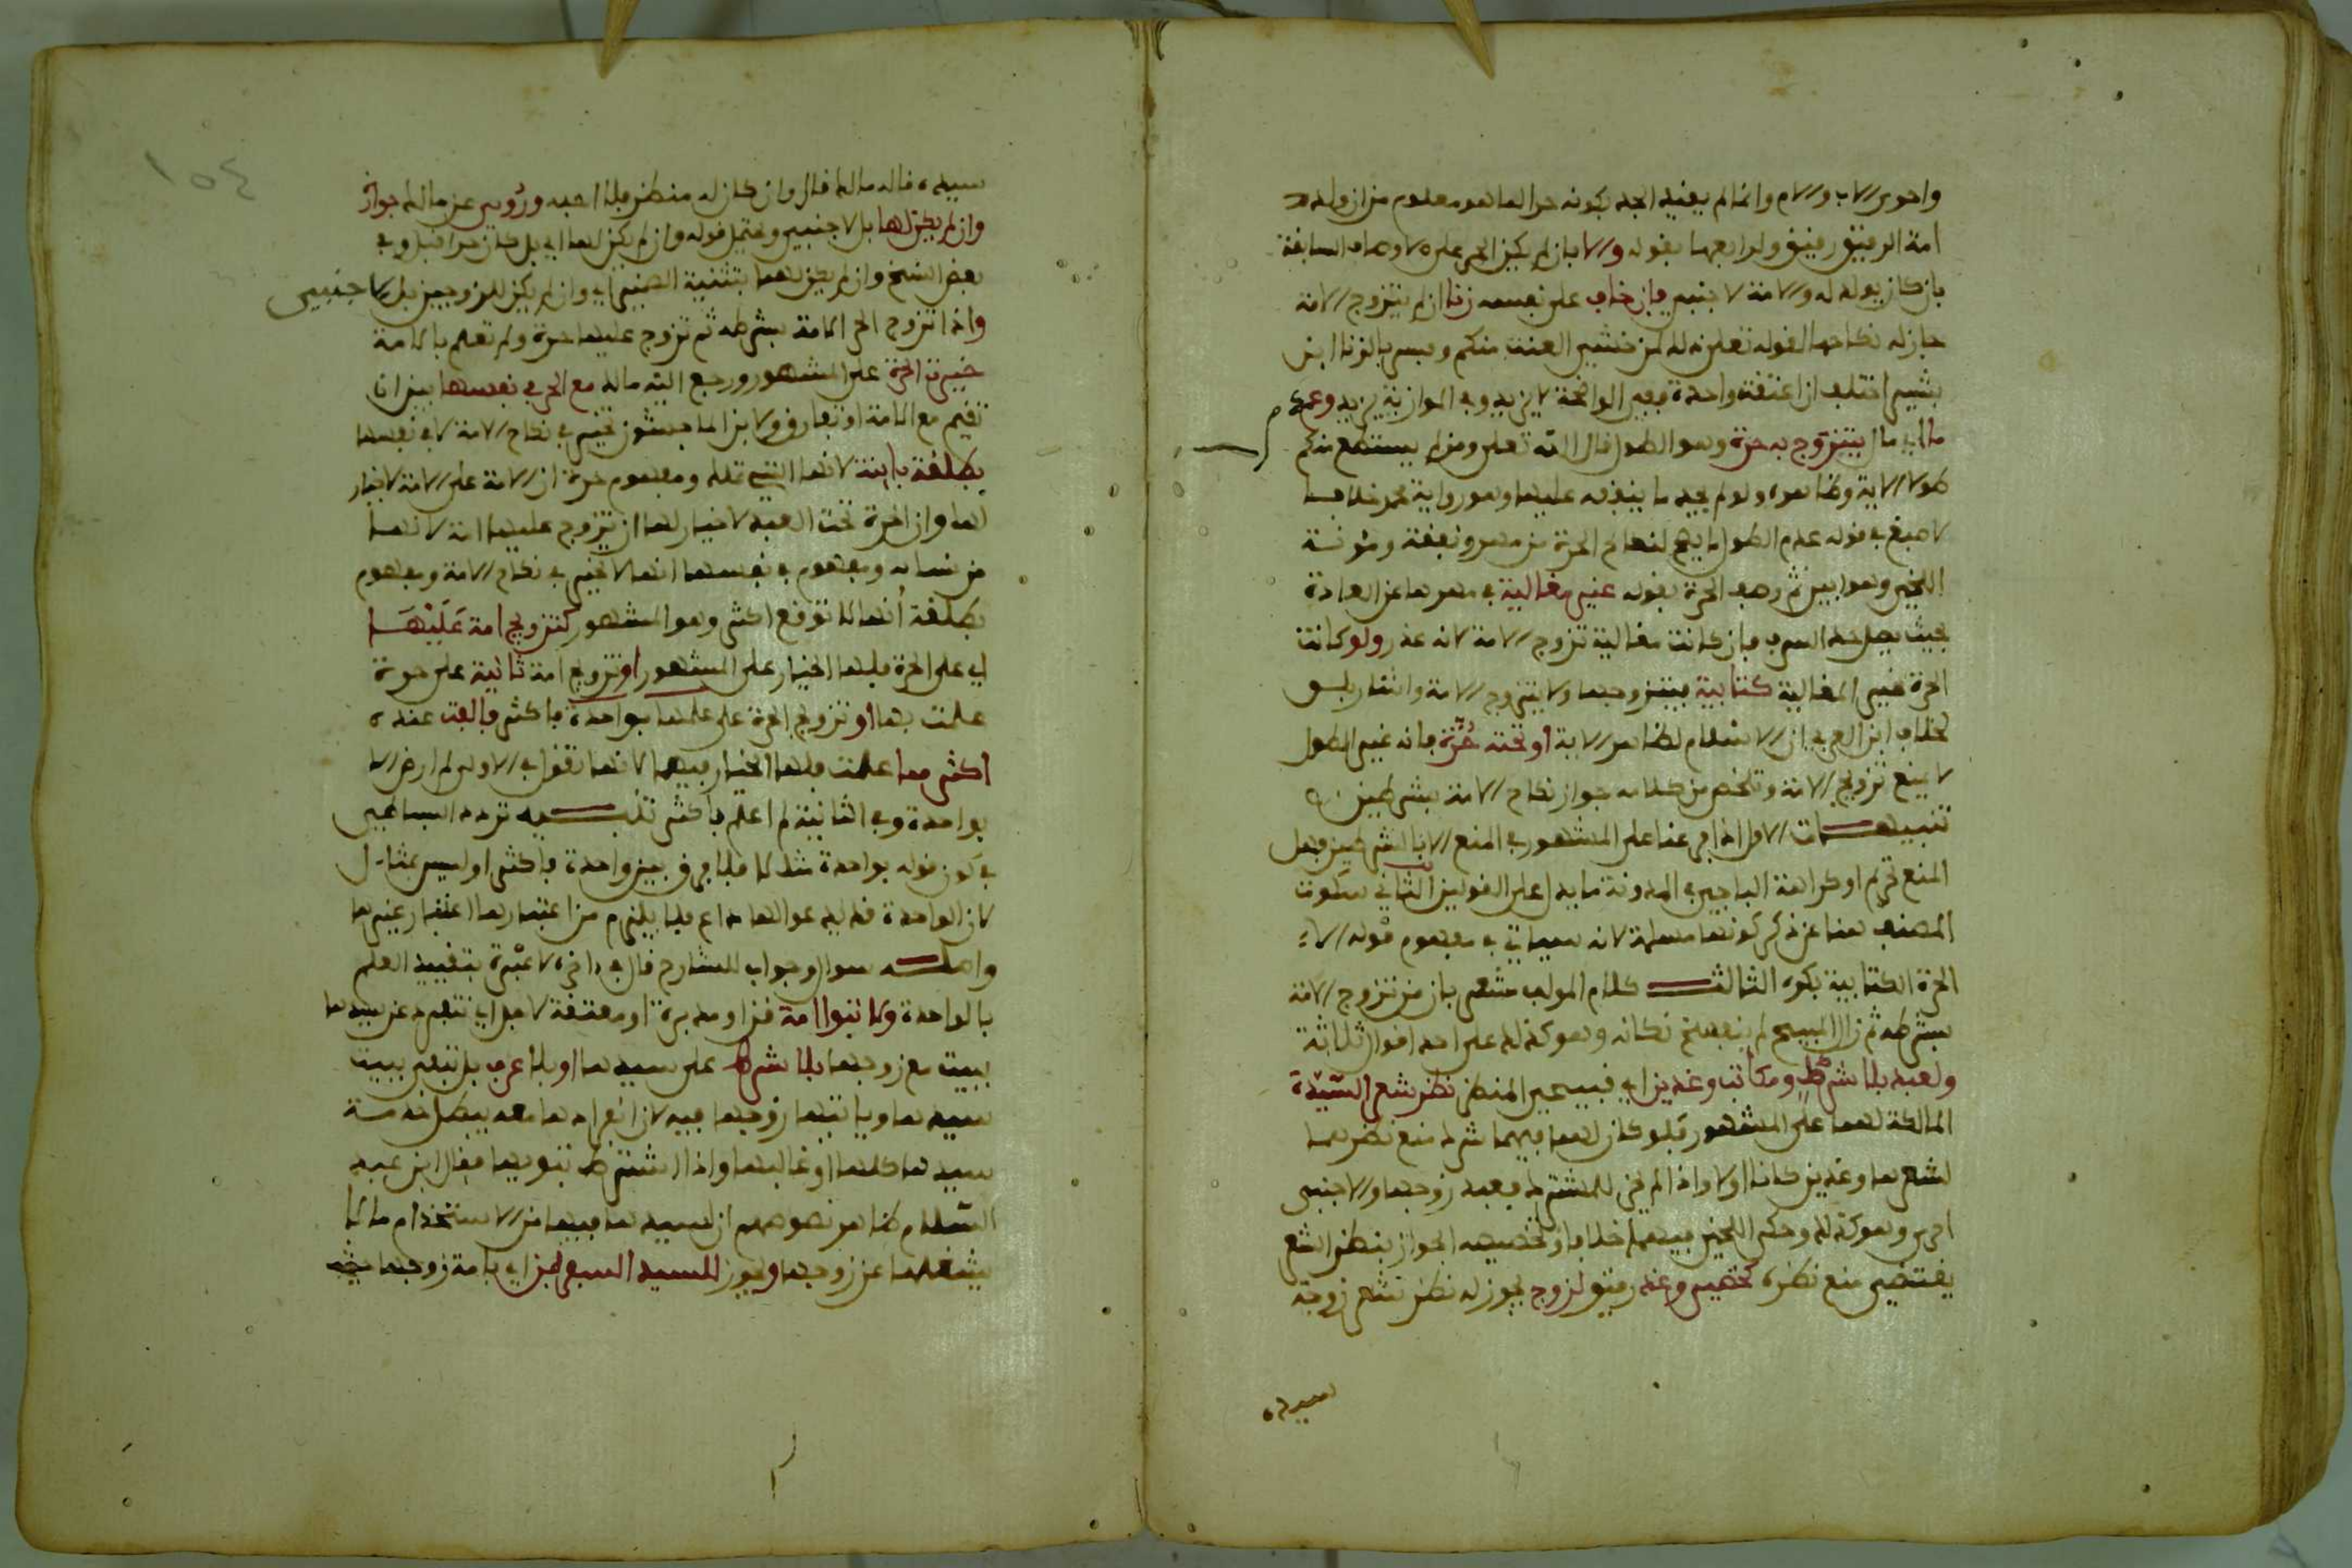 واحوى الاب والام وانما لم يقيد الجد بكونه حرا لما هو معلوم من ان ولد
امة الرقيق رقيق ولرابعها بقوله والا بان لم يكن الحر على الاوصاف السابقة
بان كان يولد له والامة لاجنبي فان خاف على نفسه زنا ان لم يتزوج الامة
جاز له نكاحها لقوله تعلى ذلك لمن خشي العنت منكم وفسر بالزنا ابن
بشير اختلف ان اعتقه واحدة ففي الواضحة لا يزيد وفي الموازية يزيد وعدم
ما اي مال يتزوج به حرة وهو الطول قال الله تعلى ومن لم يستطع منكم
طولا الاية وظاهره ولو لم يجد ما ينفقه عليها وهو رواية محمد خلافا
لاصبغ في قوله عدم الطول ما يصلح لنكاح الحرة من مهر ونفقة ومؤنسة
اللخمي وهو ابين ثم وصف الحرة بقوله غير مغالية في مهرها عن العادة
بحيث يصل حد السرف فان كانت مغالية تزوج الامة لانه عذر ولو كانت
الحرة غير المغالية كتابية فيتزوجها ولا يتزوج الامة واشار بلو
لخلاف ابن العربي ان الاسلام لظاهر الاية او تحته حرة فانه غير الطول
لا يمنع تزويج الامة وتلخص من كلامه جواز نكاح الامة بشرطين
تنبيهات الاول اذا فرعنا على المشهور في المنع الا بالشرطين فهل
المنع تحريم او كراهة الباجي في المدونة ما يدل على القولين الثاني سكوت
المصنف هنا عن ذكر كونها مسلمة لانه سياتي في مفهوم قوله الا
الحرة الكتابية بكره الثالث كلام المولف مشعر بان من تزوج الامة
بشرطه ثم زال المبيح لم ينفسخ نكاحه وهو كذلك على احد اقوال ثلاثة
ولعبد بلا شرك ومكاتب وغدين اي قبيحي المنظر نظر شعر السيدة
المالكة لهما على المشهور فلو كان لهما فيهما شرك منع نظرهما
لشعرها وغدين كانا او لا واذا لم يجز للمشترك فعبد زوجها والاجنبي
احرى وهو كذلك وحكى اللخمي فيهما خلافا وتخصيصه الجواز بنظر الشعر
يقتضي منع نظره كخصي وغد رقيق لزوج يجوز له نظر شعر زوجة
سيده
١٥٤
سيده قاله مالك قال وان كان له منظر فلا احبه وروي عن مالك جواز
وان لم يكن لها بل لاجنبي ويحتمل قوله وان لم يكن لها اي بل كان حرا قبل وفي
بعض النسخ وان لم يكن لهما بتثنية الضمير اي وان لم يكن للزوجين بل لاجنبي
واذا تزوج الحر الامة بشرطه ثم تزوج عليها حرة ولم تعلم بالامة
خيرت الحرة على المشهور ورجع اليه مالك مع الحر في نفسها بين ان
تقيم مع الامة او تفارق ولابن الماجشون تخير في نكاح الامة لا في نفسها
بطلقة باينة لانها التي تملك ومفهوم حرة ان الامة على الامة لا خيار
لها وان الحرة تحت العبد لا خيار لها ان يتزوج عليها امة لانها
من نسائه ومفهوم في نفسها انها لا تخير في نكاح الامة ومفهوم
بطلقة انها لا توقع اكثر وهو المشهور كتزويج امة عليها
اي على الحرة فلها الخيار على المشهور او تزويج امة ثانية على حرة
علمت بها او تزويج الحرة على علمها بواحدة فاكثر فالفت عنده
اكثر مما علمت فلها الخيار فيهما لانها تقول في الاولى لم ارض الا
بواحدة وفي الثانية لم اعلم باكثر تنبيه تردد البساطي
في كون قوله بواحدة مثالا فلا فرق بين واحدة فاكثر او ليس بمثال
لان الواحدة قد يدعوا لها داع فلا يلزم من اعتبارها اعتبار غيرها
واصله سوال وجواب للشارح قال في اخره لا عبرة بتقييد العلم
بالواحدة ولا تبوا امة قن او مدبرة او معتقة لاجل اي تنفرد عن سيدها
ببيت مع زوجها بلا شرط على سيدها او بلا عرف بل تبقى ببيت
سيدها وياتيها زوجها فيه لان انفرادها معه يبطل خدمة
سيدها كلها او غالبها واذا اشترط تبويها فقال ابن عبد
السلام ظاهر نصوصهم ان لسيدها فيها من الاستخدام ما لا
يشغلها عن زوجها ويجوز للسيد السفر بمن اي بامة زوجها حيث